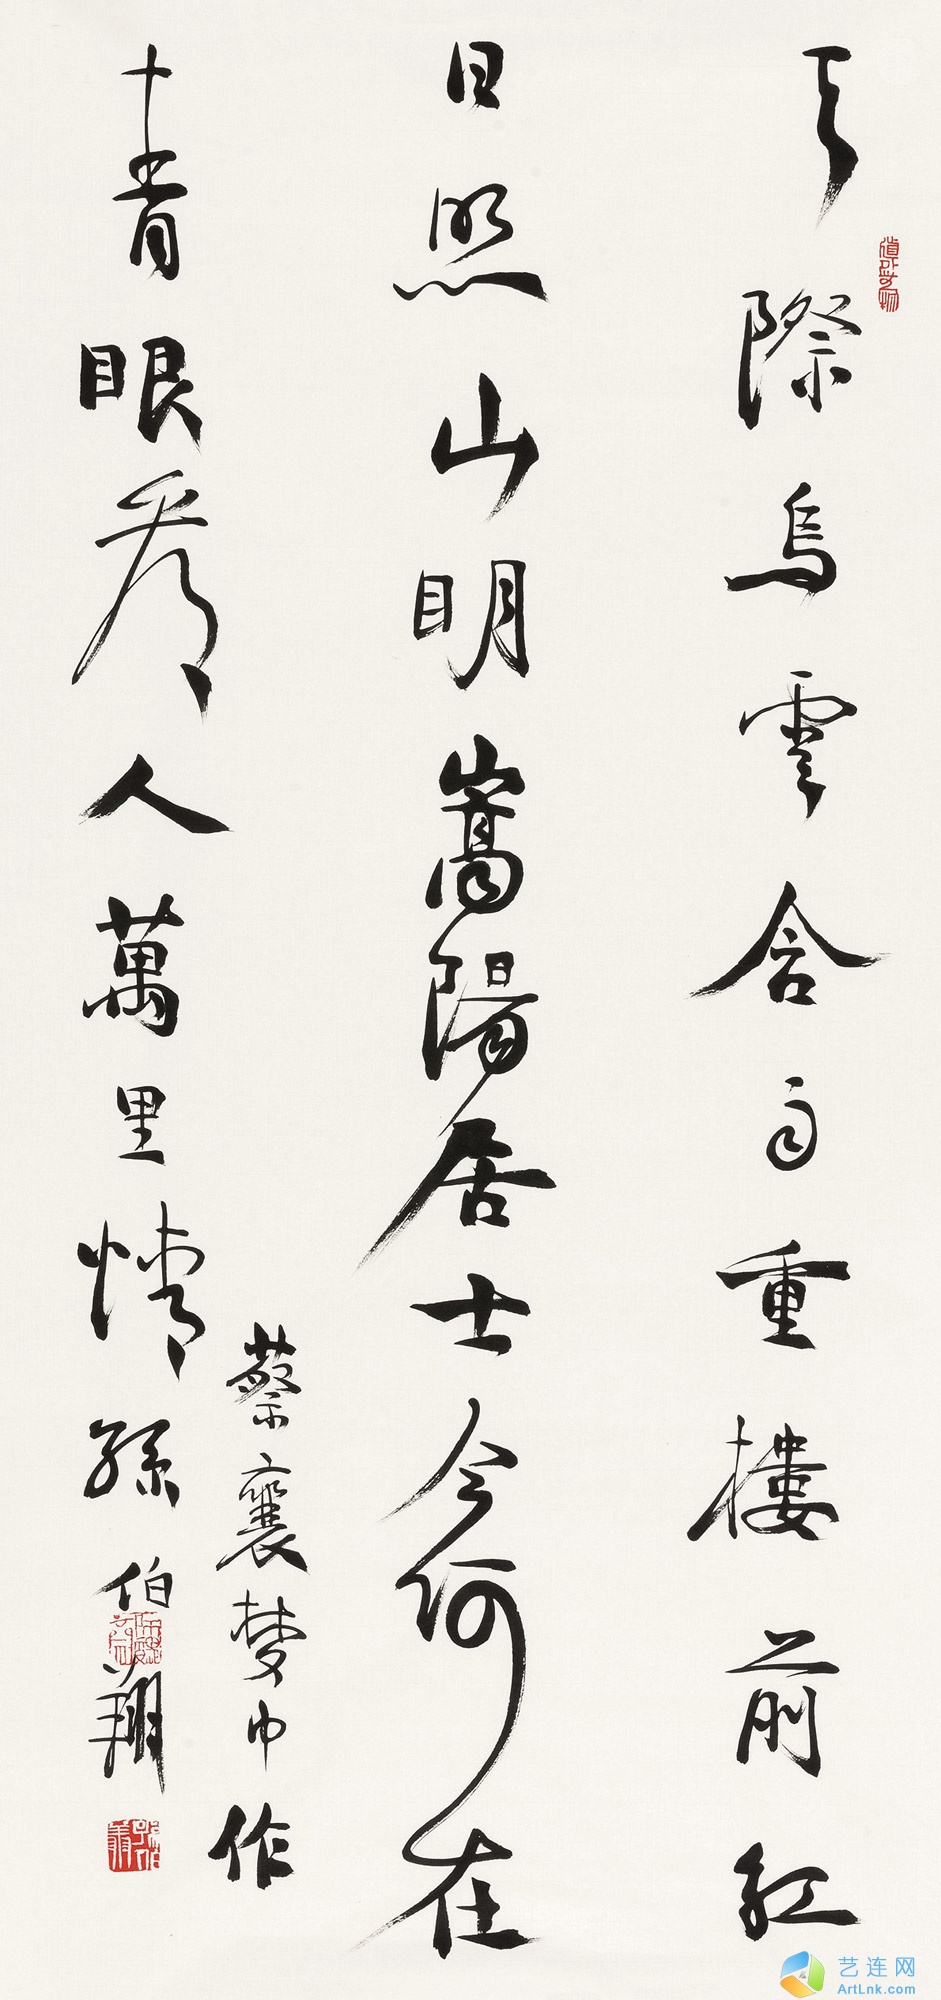 天際烏雲含雨重樓前紅
日照山明嵩陽居士今何在
青眼看人萬里情
蔡襄夢中作
孫伯翔
艺连网
ArtLnk.com